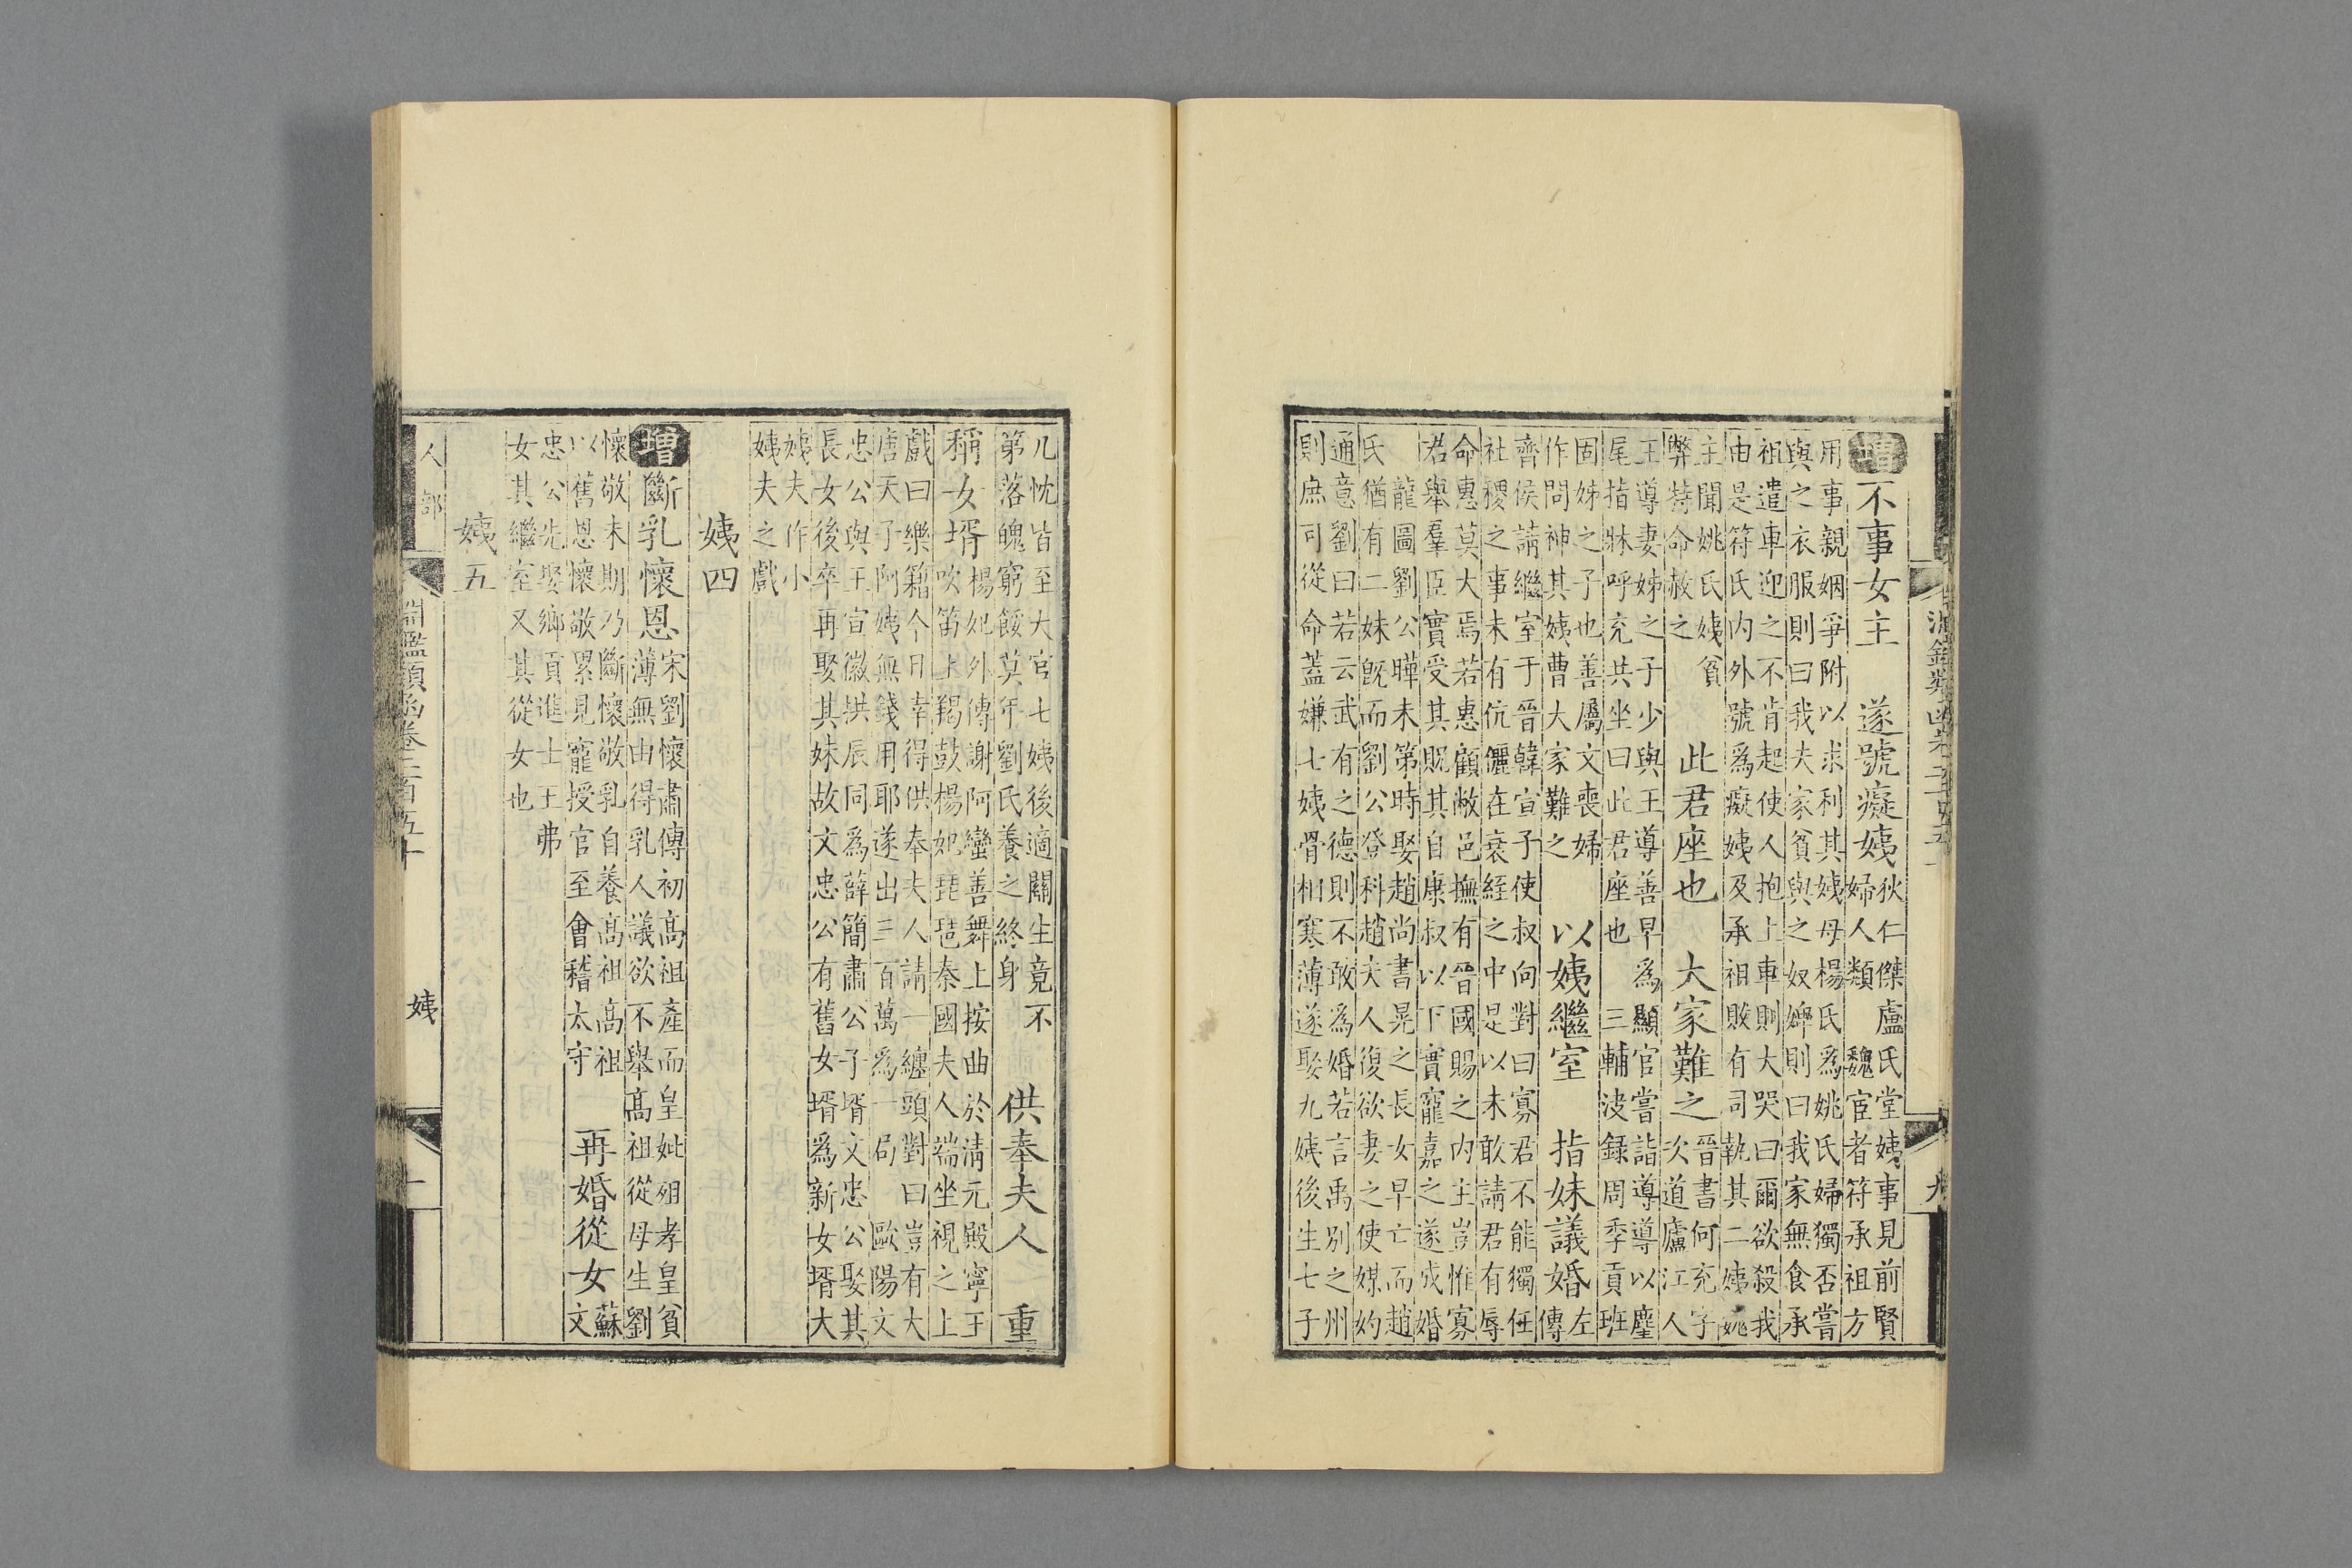 增 不事女主 遂號癡姨
狄仁傑盧氏堂姨事見前賢
婦人類 魏宦者符承祖方
用事親姻爭附以求利其姨母楊氏爲姚氏婦獨否嘗
與之衣服則曰我夫家貧與之奴婢則曰我家無食承
祖遣車迎之不肯起使人抱上車則大哭曰爾欲殺我
由是符氏內外號爲癡姨及承祖敗有司執其二姨姚
主聞姚氏姨貧
弊特命赦之
此君座也 大家難之
晉書何充字
次道廬江人
王導妻姊之子少與王導善早爲顯官嘗詣導導以麈
尾指牀呼充共坐曰此君座也 三輔决錄周季貢班
固姊之子也善屬文喪婦
作問神其姨曹大家難之
以姨繼室 指妹議婚
左
傳
齊侯請繼室于晉韓宣子使叔向對曰寡君不能獨任
社稷之事未有伉儷在衰絰之中是以未敢請君有辱
命惠莫大焉若惠顧敝邑撫有晉國賜之內主豈惟寡
君舉羣臣實受其貺其自康叔以下實寵嘉之遂成婚
龍圖劉公曄未第時娶趙尚書晃之長女早亡而趙
氏猶有二妹旣而劉公登科趙夫人復欲妻之使媒妁
通意劉曰若云武有之德則不敢爲婚若言禹別之州
則庶可從命蓋嫌七姨骨相寒薄遂娶九姨後生七子
几忱皆至大官七姨後適關生竟不
第落魄窮餒莫年劉氏養之終身
供奉夫人 重
稱女壻
楊妃外傳謝阿蠻善舞上按曲於淸元殿寧王
吹笛上羯鼓楊妃琵琶秦國夫人端坐視之上
戲曰樂籍今日幸得供奉夫人請一纏頭對曰豈有大
唐天子阿姨無錢用耶遂出三百萬爲一局 歐陽文
忠公與王宣徽拱辰同爲薛簡肅公子壻文忠公娶其
長女後卒再娶其妹故文忠公有舊女壻爲新女壻大
姨夫作小
姨夫之戲
姨四
增 斷乳懷恩
宋劉懷肅傳初高祖產而皇妣殂孝皇貧
薄無由得乳人議欲不舉高祖從母生劉
懷敬未期乃斷懷敬乳自養高祖高祖
以舊恩懷敬累見寵授官至會稽太守
再婚從女
蘇
文
忠公先娶鄉貢進士王弗
女其繼室又其從女也
姨五
人部 淵鑑類函卷二百五十 姨